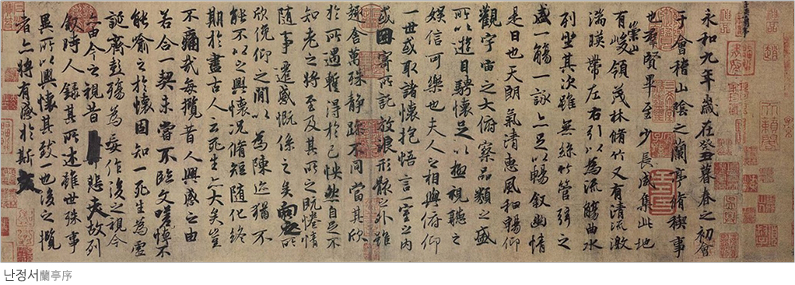 永和九年歲在癸丑暮春之初會
于會稽山陰之蘭亭脩稧事
也羣賢畢至少長咸集此地
有崇山峻領茂林脩竹又有清流激
湍暎帶左右引以為流觴曲水
列坐其次雖無絲竹管弦之
盛一觴一詠亦足以暢敘幽情
是日也天朗氣清惠風和暢仰
觀宇宙之大俯察品類之盛
所以遊目騁懷足以極視聽之
娛信可樂也夫人之相與俯仰
一世或取諸懷抱悟言一室之內
或因寄所託放浪形骸之外雖
趣舍萬殊靜躁不同當其欣
於所遇暫得於己怏然自足不
知老之將至及其所之既惓情
隨事遷感慨係之矣向之所
欣俛仰之閒以為陳迹猶不
能不以之興懷況脩短隨化終
期於盡古人云死生亦大矣豈
不痛哉每攬昔人興感之由
若合一契未嘗不臨文嗟悼不
能喻之於懷固知一死生為虛
誕齊彭殤為妄作後之視今
亦由今之視昔悲夫故列
敘時人錄其所述雖世殊事
異所以興懷其致一也後之攬
者亦將有感於斯文
난정서蘭亭序